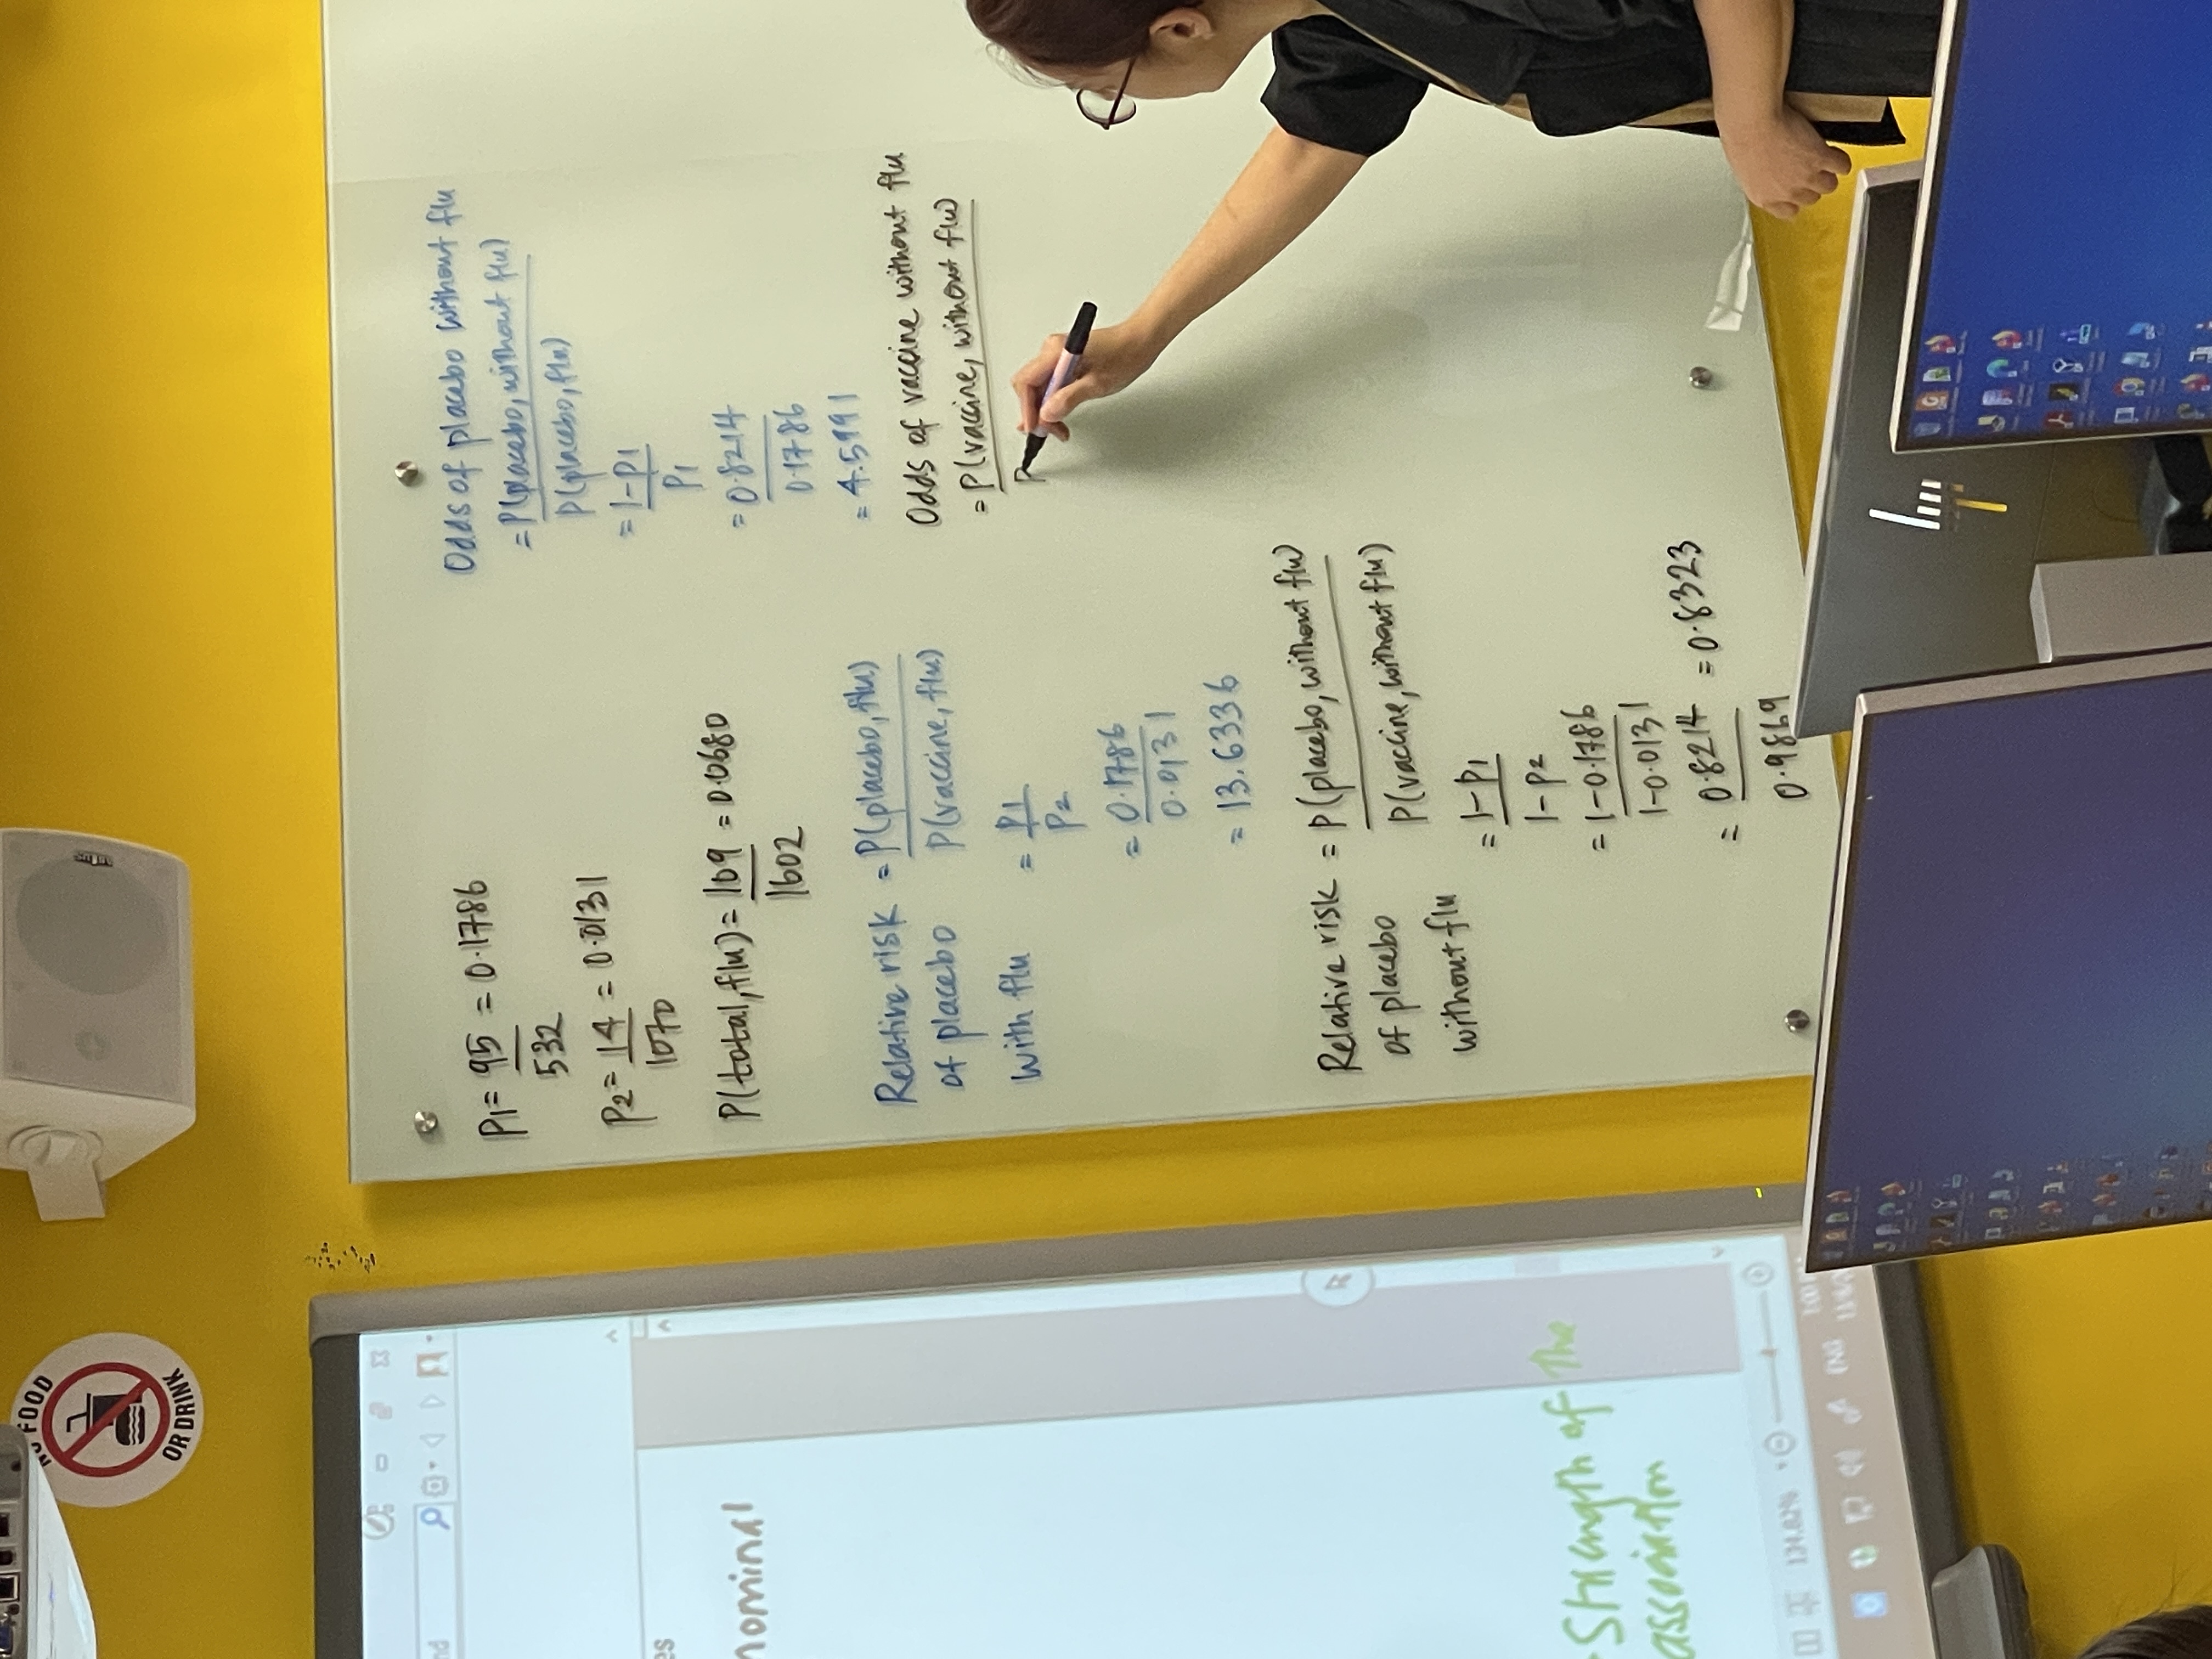 NO FOOD
OR DRINK
nd
es
nominal
Strength of the
association
134.82%
ENG
P1 = 95 = 0.1786
532
P2 = 14 = 0.0131
1070
P(total, flu) = 109 = 0.0680
1602
Relative risk = P(placebo, flu)
of placebo P(vaccine, flu)
with flu = P1
P2
= 0.1786
0.0131
= 13.6336
Relative risk = P(placebo, without flu)
of placebo P(vaccine, without flu)
without flu
= 1-P1
1-P2
= 1-0.1786
1-0.0131
= 0.8214 = 0.8323
0.9869
Odds of placebo without flu
= P(placebo, without flu)
P(placebo, flu)
= 1-P1
P1
= 0.8214
0.1786
= 4.5991
Odds of vaccine without flu
= P(vaccine, without flu)
P